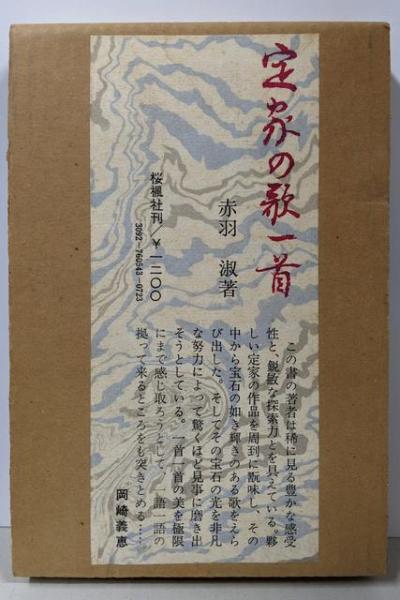 定家の歌一首
赤羽　淑著
桜楓社刊／￥一二〇〇
3092-760543-0723
この書の著者は稀に見る豊かな感受
性と、鋭敏な探索力とを具えている。夥
しい定家の作品を周到に翫味し、その
中から宝石の如き輝きのある歌をえら
び出した。そしてその宝石の光を非凡
な努力によって驚くほど見事に磨き出
そうとしている。一首一首の美を極限
にまで感じ取ろうとして、一語一語の
拠って来るところをも突きとめる……
岡崎義恵